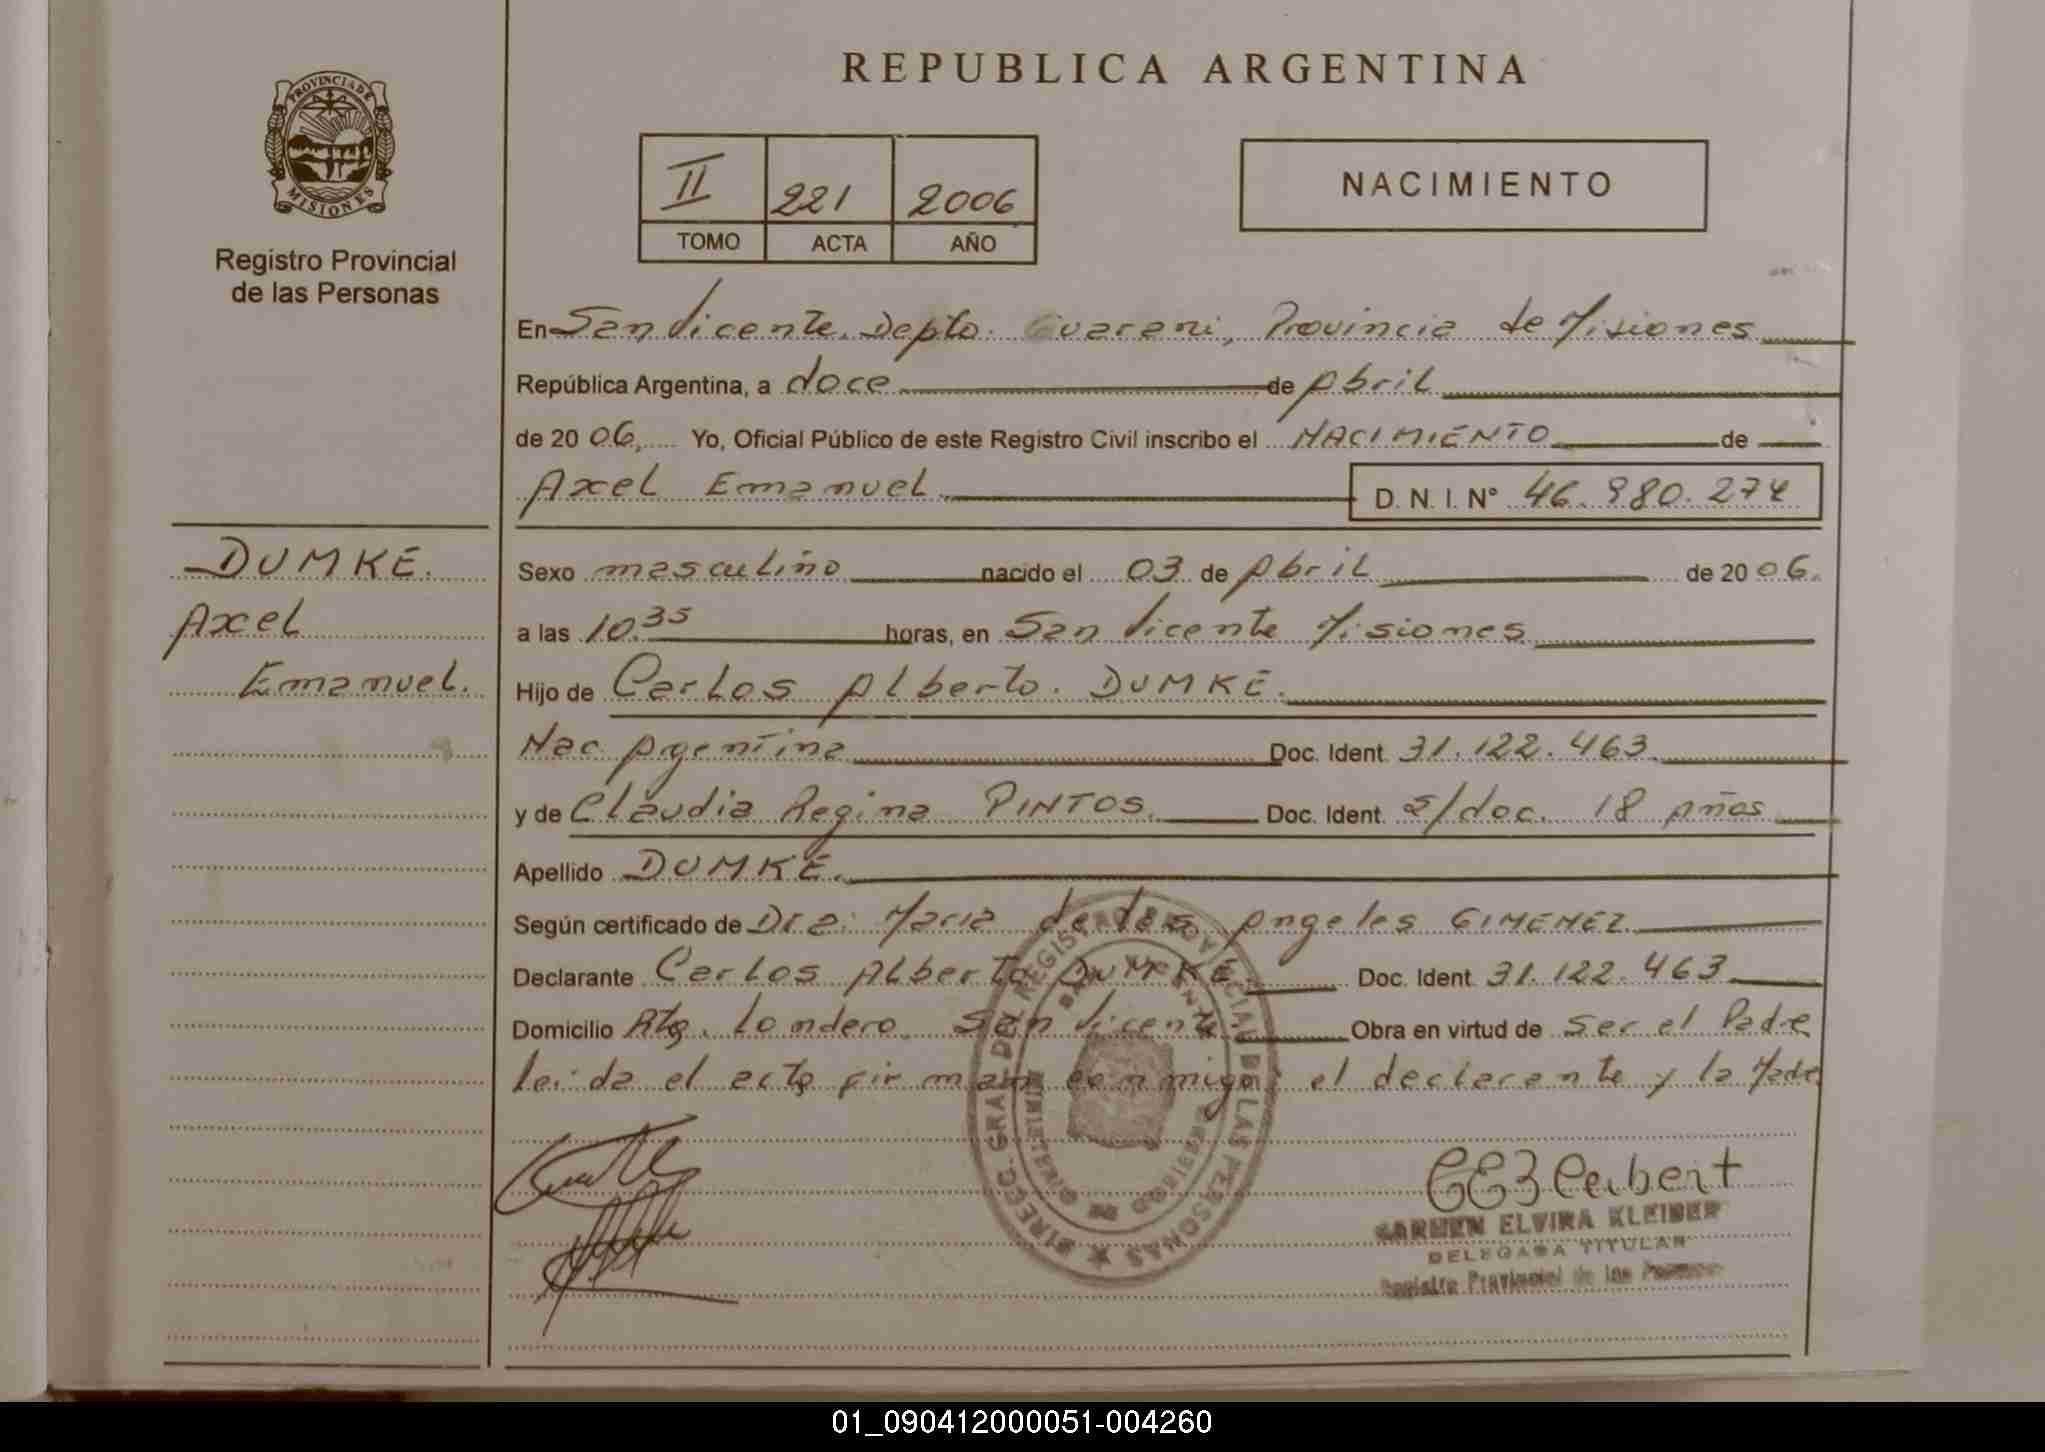 REPUBLICA ARGENTINA
PROVINCIA DE
MISIONES
Registro Provincial
de las Personas
II 221 2006
TOMO ACTA AÑO
NACIMIENTO
En San Vicente. Depto. Guarani, Provincia de Misiones
República Argentina, a doce de Abril
de 2006, Yo, Oficial Público de este Registro Civil inscribo el NACIMIENTO de
Axel Emanuel D. N. I. N° 46.980.274
DUMKE.
Axel
Emanuel.
Sexo masculino nacido el 03 de Abril de 2006.
a las 10.35 horas, en San Vicente Misiones
Hijo de Carlos Alberto. DUMKE.
Nac. Argentina Doc. Ident. 31.122.463
y de Claudia Regina PINTOS. Doc. Ident. s/doc. 18 Años
Apellido DUMKE.
Según certificado de Dra: Maria de los Angeles GIMENEZ
Declarante Carlos Alberto DUMKE Doc. Ident. 31.122.463
Domicilio Londero. San Vicente Obra en virtud de ser el Padre
leida el acta firman conmigo: el declarante y la Madre
DIRECC. GRAL. DEL REGISTRO PROVINCIAL DE LAS PERSONAS
CARMEN ELVIRA KLEIBER
DELEGADA TITULAR
Registro Provincial de las Personas
01_090412000051-004260